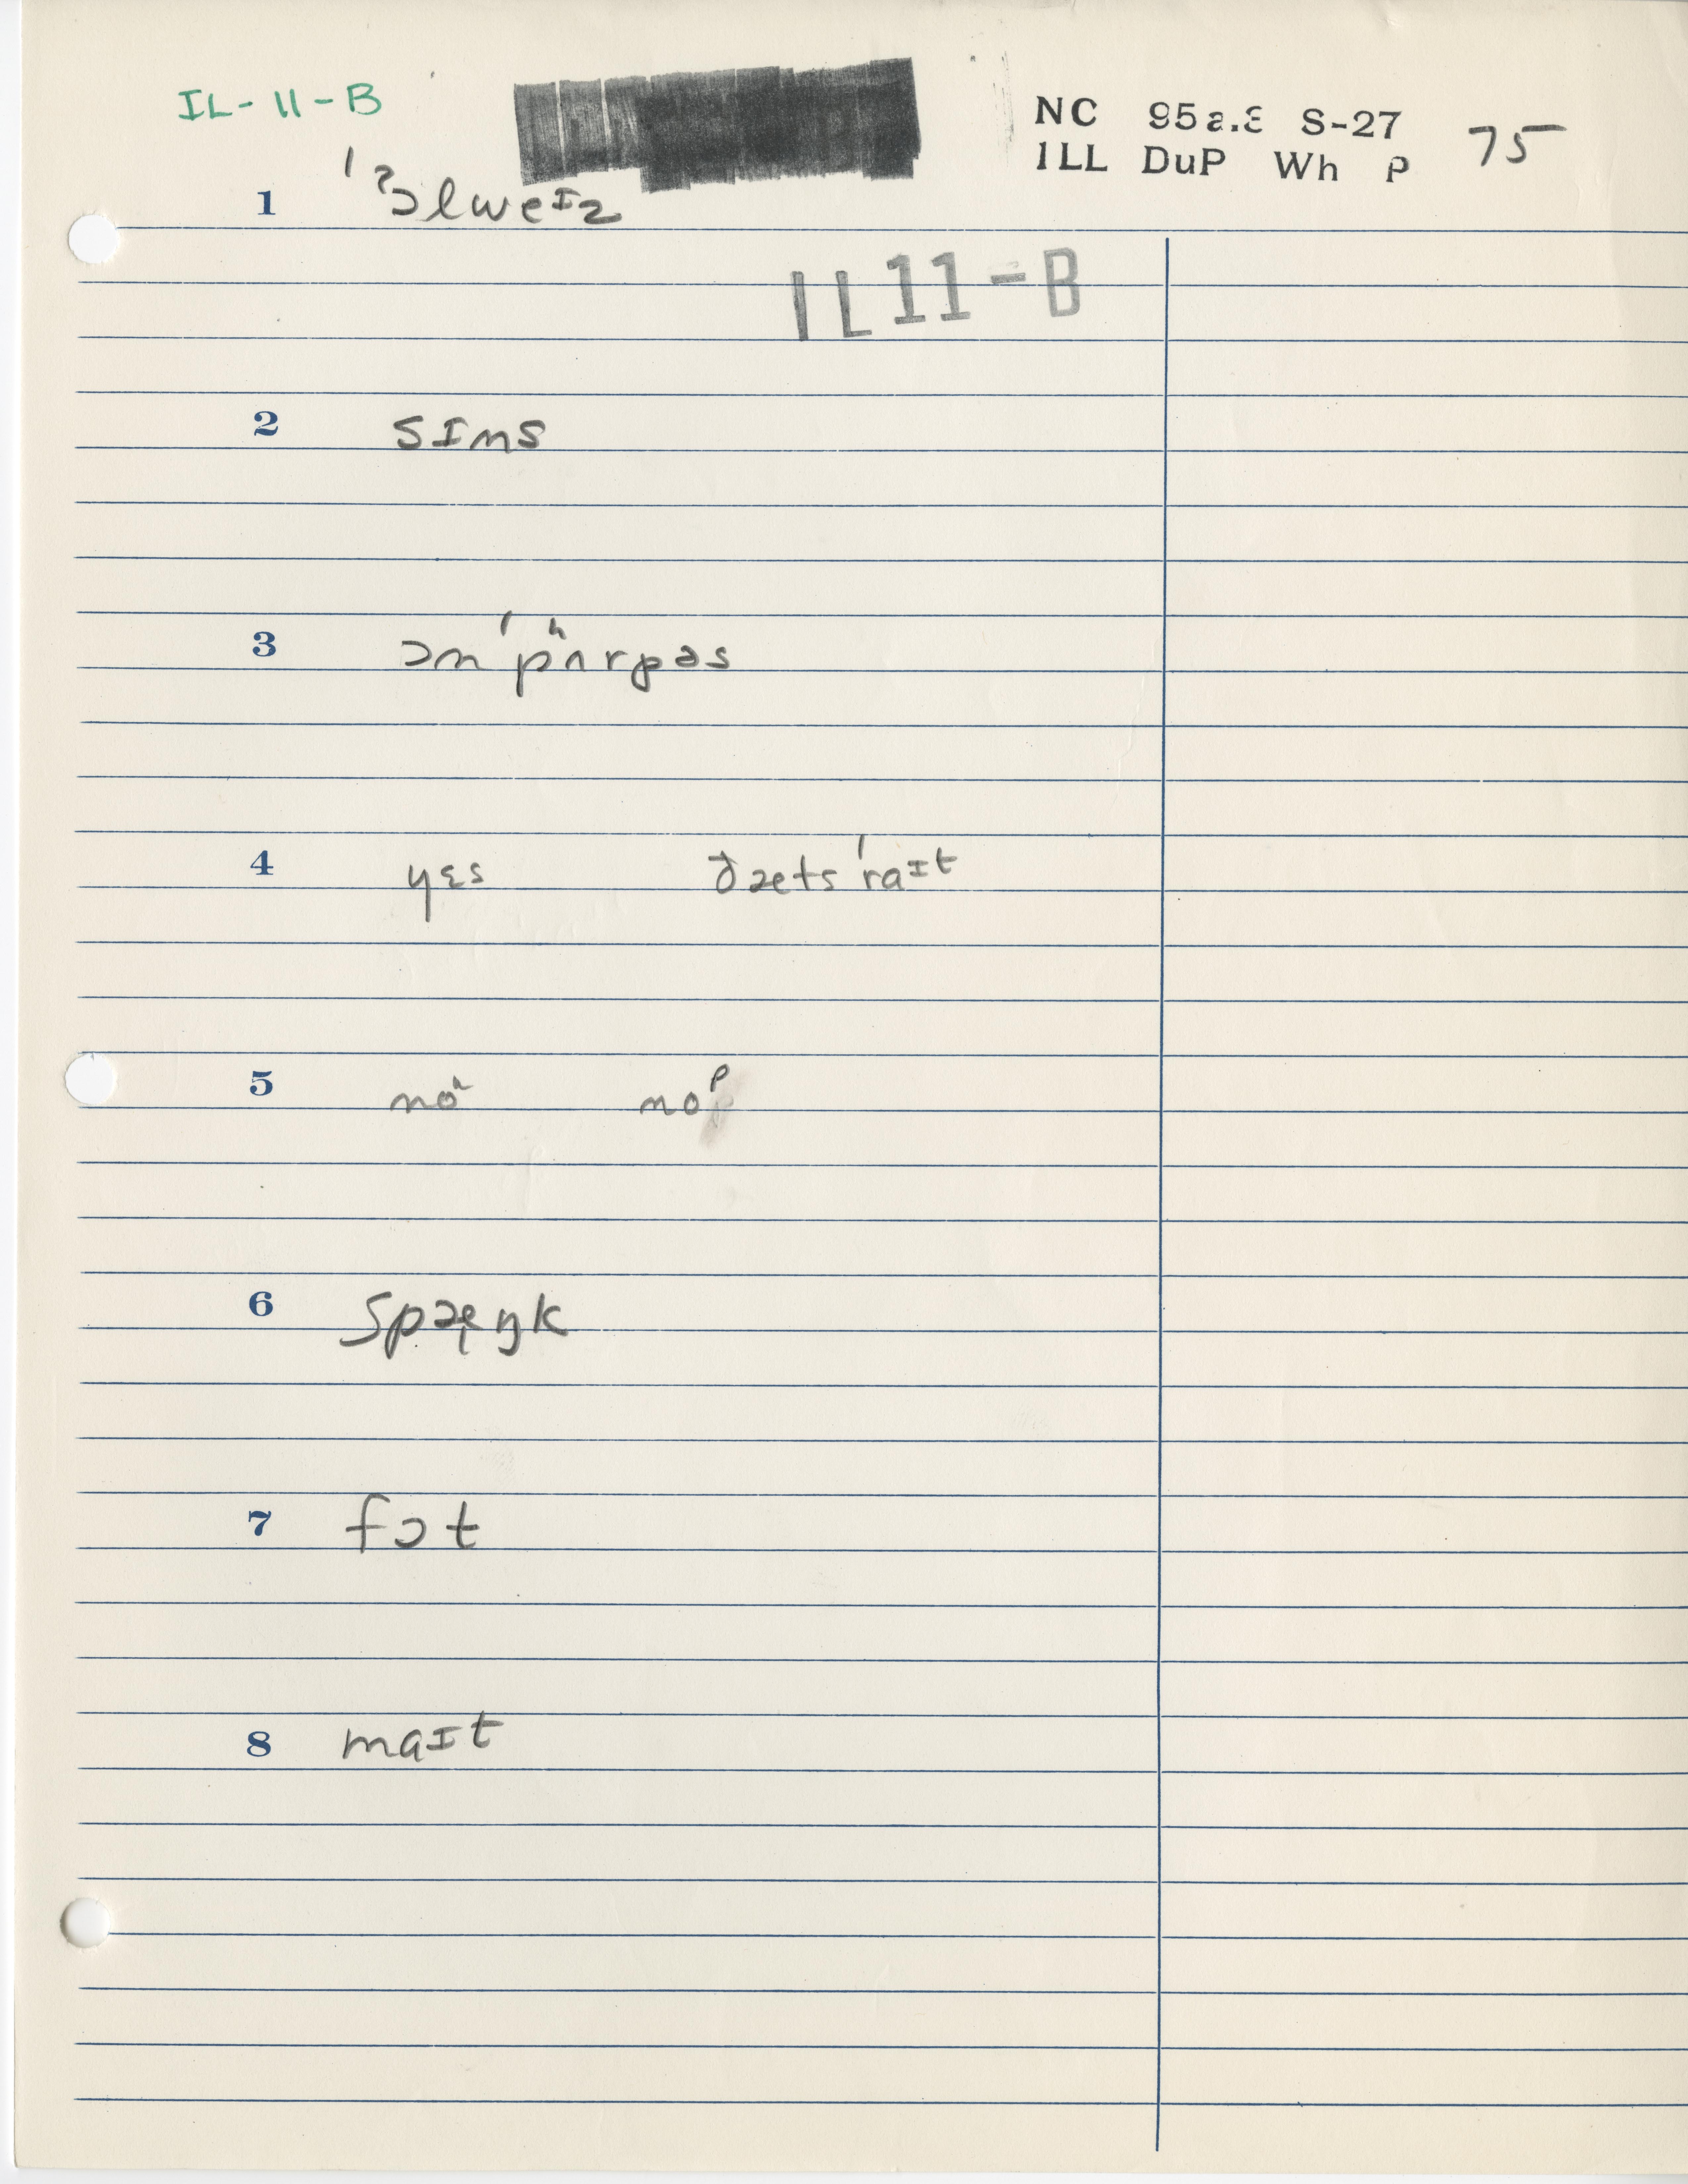 IL-11-B
NC 95a.3 S-27 75
ILL DuP Wh P
1 ˈˀɔlweɪz
IL11-B
2 sɪns
3 ɔn ˈpʰʌrpəs
4 yɛs ðæts ˈraɪt
5 noʊ noᵖ
6 spæŋk
7 fɔt
8 maɪt